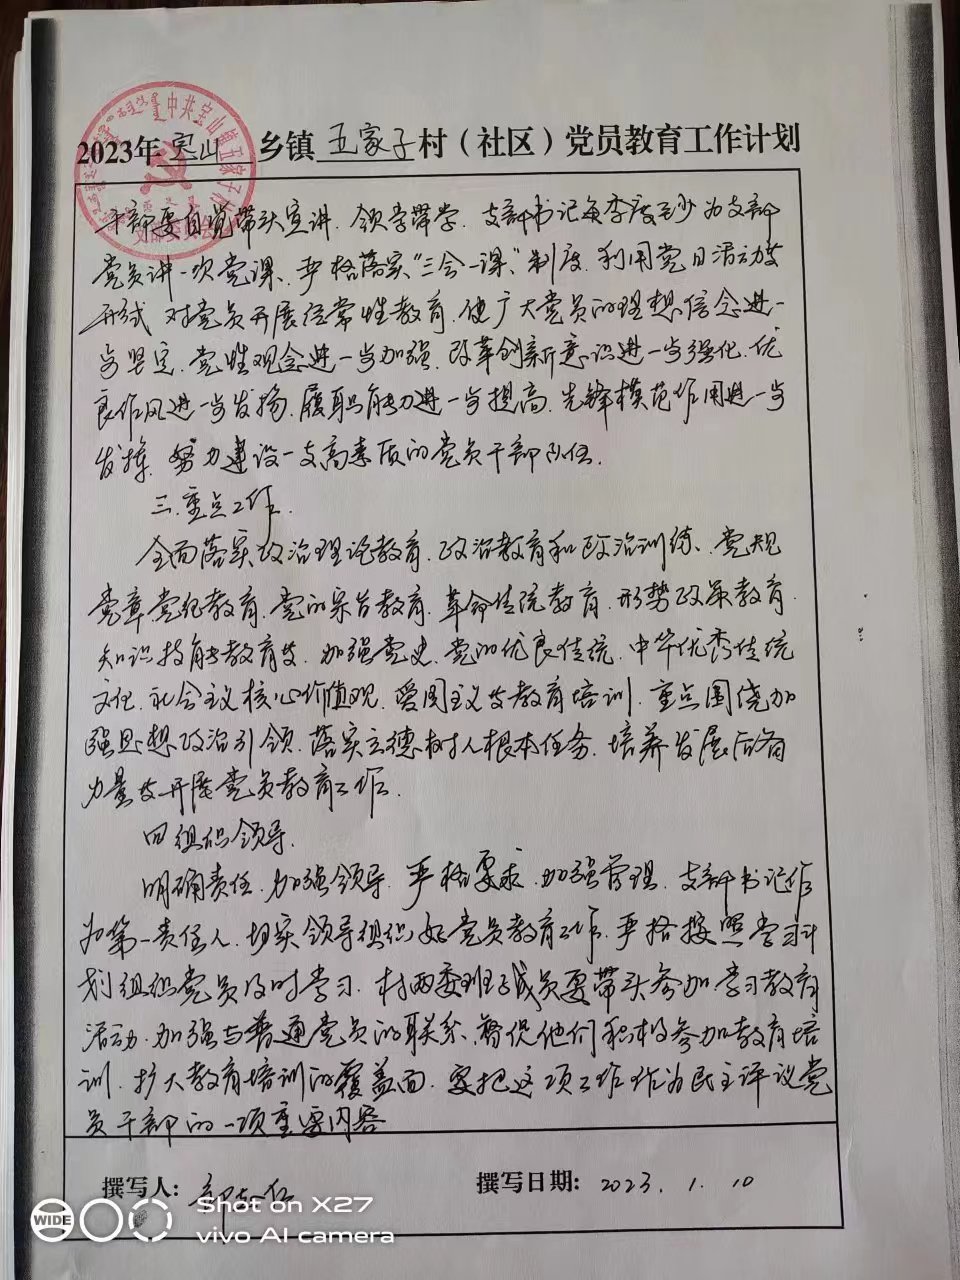 2023年宝山乡镇五家子村（社区）党员教育工作计划
干部要自觉带头宣讲、领学带学、支部书记每季度至少为支部
党员讲一次党课、严格落实“三会一课”制度、利用党日活动等
形式 对党员开展经常性教育、使广大党员的理想信念进一
步坚定、党性观念进一步加强、改革创新意识进一步强化、优
良作风进一步发扬、履职能力进一步提高、先锋模范作用进一步
发挥、努力建设一支高素质的党员干部队伍.
三、重点工作.
全面落实政治理论教育、政治教育和政治训练、党规
党章党纪教育、党的宗旨教育、革命传统教育、形势政策教育、
知识技能教育等、加强党史、党的优良传统、中华优秀传统
文化、社会主义核心价值观、爱国主义等教育培训、重点围绕加
强思想政治引领、落实立德树人根本任务、培养发展后备
力量等开展党员教育工作.
四组织领导.
明确责任、加强领导、严格要求、加强管理、支部书记作
为第一责任人、切实领导组织好党员教育工作、严格按照学习计
划组织党员及时学习、村两委班子成员要带头参加学习教育
活动、加强与普通党员的联系、督促他们积极参加教育培
训、扩大教育培训的覆盖面、要把这项工作作为民主评议党
员干部的一项重要内容
撰写人：
撰写日期：2023.1.10
中共宝山镇五家子
WIDE
Shot on X27
vivo AI camera